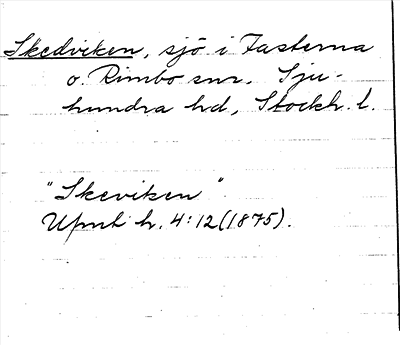 Skedviken, sjö i Fasterna
o. Rimbo snr. Sju-
hundra hd, Stockh. l.
"Skeviken"
Upmt h. 4:12 (1875).